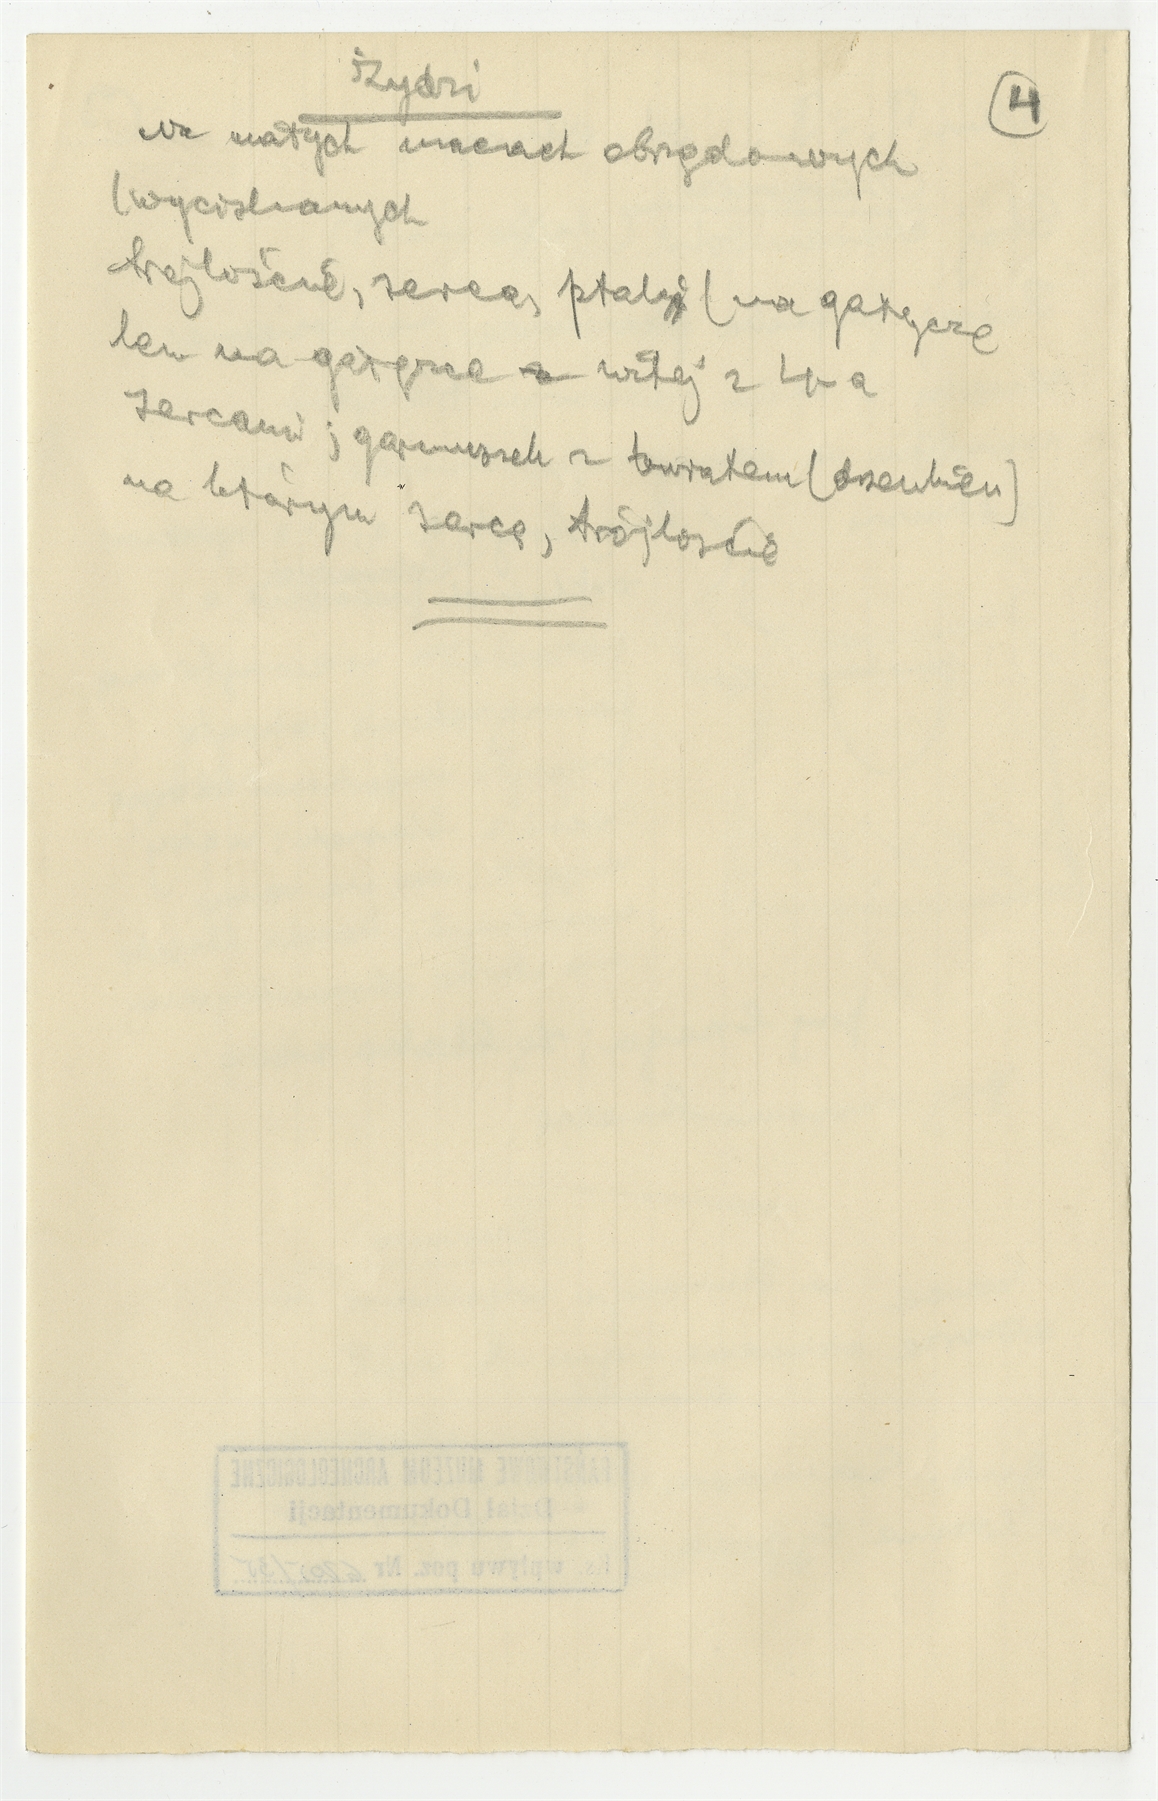 Żydzi
4
na małych macach obrzędowych
(wyciskanych
trójliście, serca, ptaki (na gałęzce
lew na gałęzce z
sercami; garnuszek z kwiatem (dzenkien)
na którym serce, trójliście
PAŃSTWOWE MUZEUM ARCHEOLOGICZNE
Dział Dokumentacji
Ks. wpływu poz. Nr